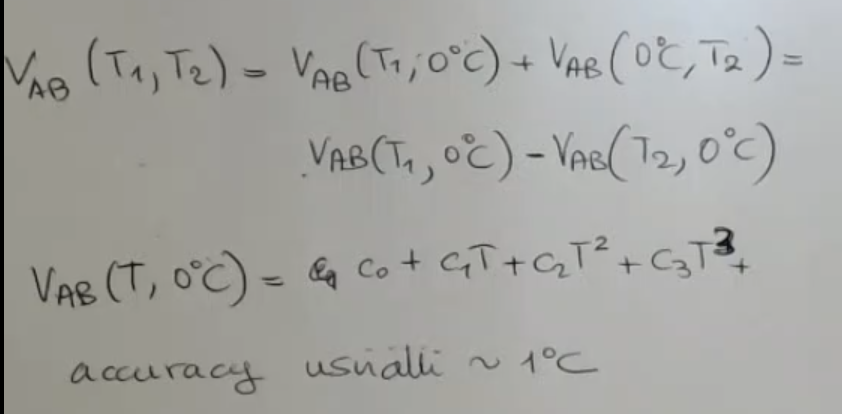 V_AB (T₁, T₂) = V_AB (T₁, 0°C) + V_AB (0°C, T₂) =
V_AB (T₁, 0°C) - V_AB (T₂, 0°C)
V_AB (T, 0°C) = c₀ + c₁T + c₂T² + c₃T³ +
accuracy usualli ~ 1°C